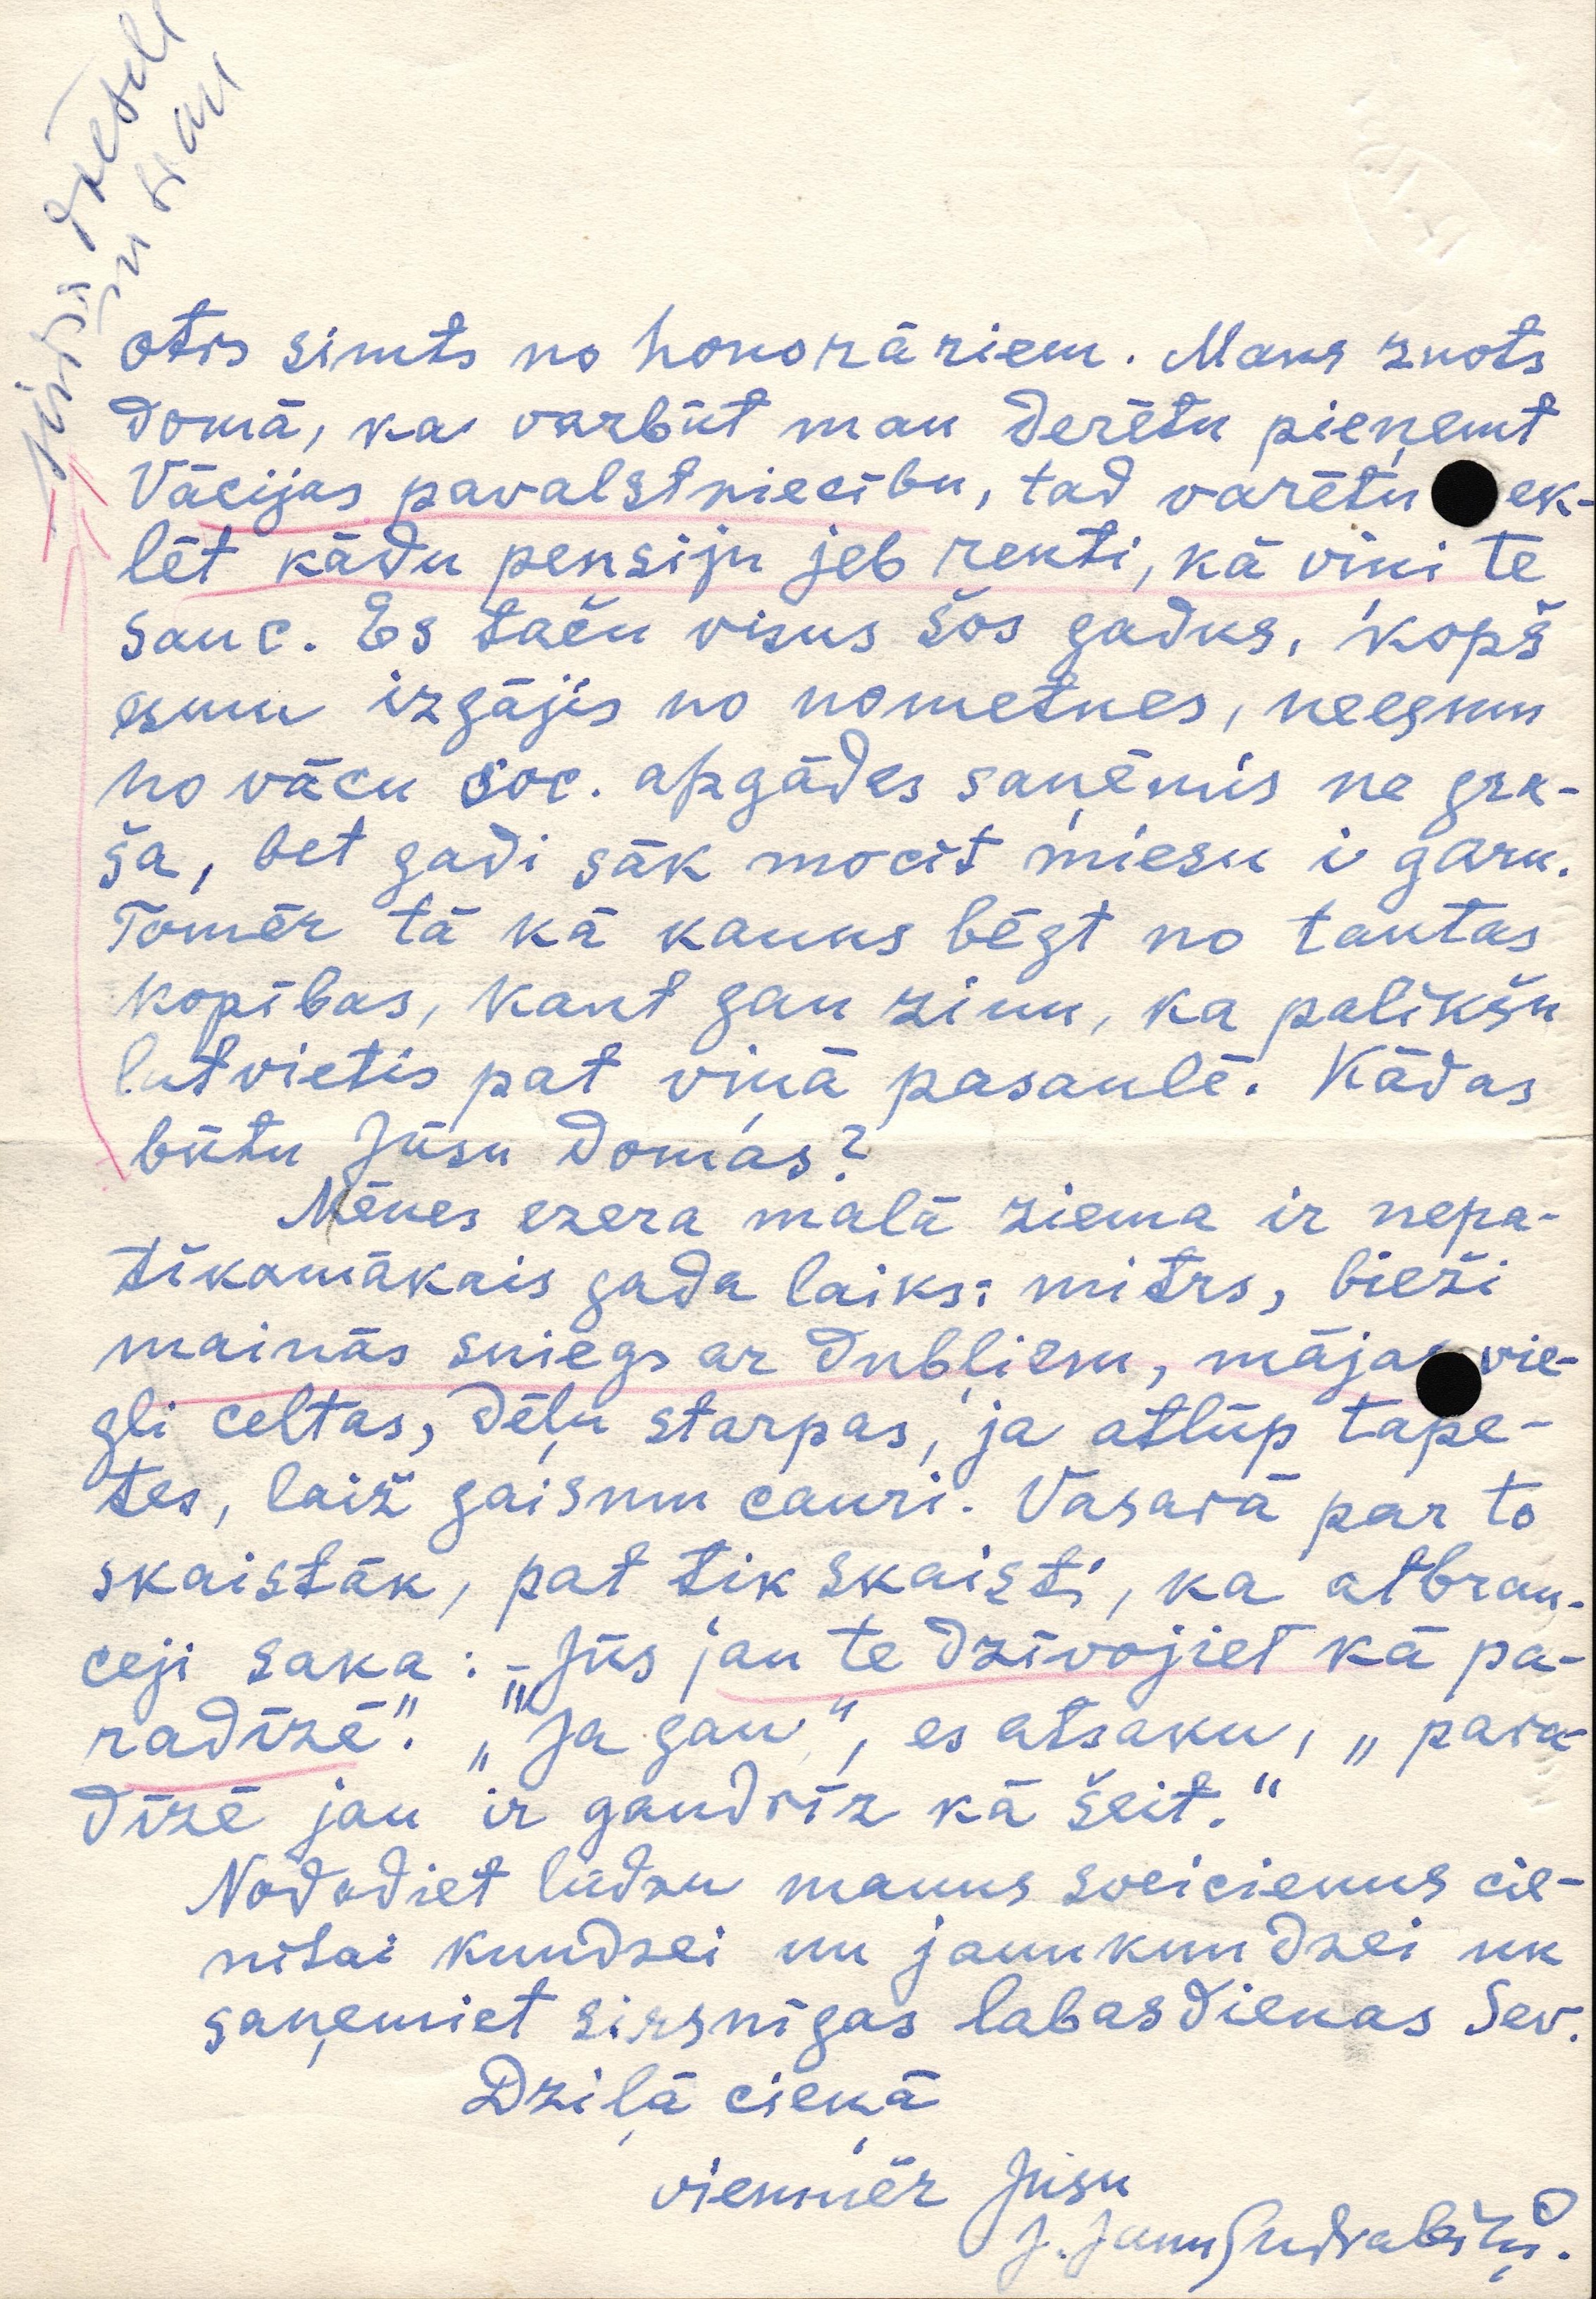 otrs simts no honorāriem. Mans znots
domā, ka varbūt man derētu pieņemt
Vācijas pavalstniecību, tad varētu ek-
lēt kādu pensiju jeb renti, kā viņi te
sauc. Es taču visus šos gadus, kopš
esmu izgājis no nometnes, neesmu
no vācu soc. apgādes saņēmis ne gra-
ša, bet gadi sāk mocīt miesu i garu.
Tomēr tā kā kauns bēgt no tautas
kopības, kaut gan zinu, ka palikšu
latvietis pat viņā pasaulē. Kādas
būtu Jūsu domas?
Mēnes ezera malā ziema ir nepa-
tīkamākais gada laiks: mitrs, bieži
mainās sniegs ar dubļiem, mājas vie-
gli celtas, dēļu starpas, ja atlūp tape-
tes, laiž gaismu cauri. Vasarā par to
skaistāk, pat tik skaisti, ka atbrau-
cēji saka: „Jūs jau te dzīvojiet kā pa-
radīzē". „Ja gan", es atsaku, „para-
dīzē jau ir gandrīz kā šeit."
Nododiet lūdzu manus sveicienus cie-
nītai kundzei un jaunkundzei un
saņemiet sirsnīgas labasdienas Sev.
Dziļā cieņā
vienmēr Jūsu
J. Jaunsudrabiņš.